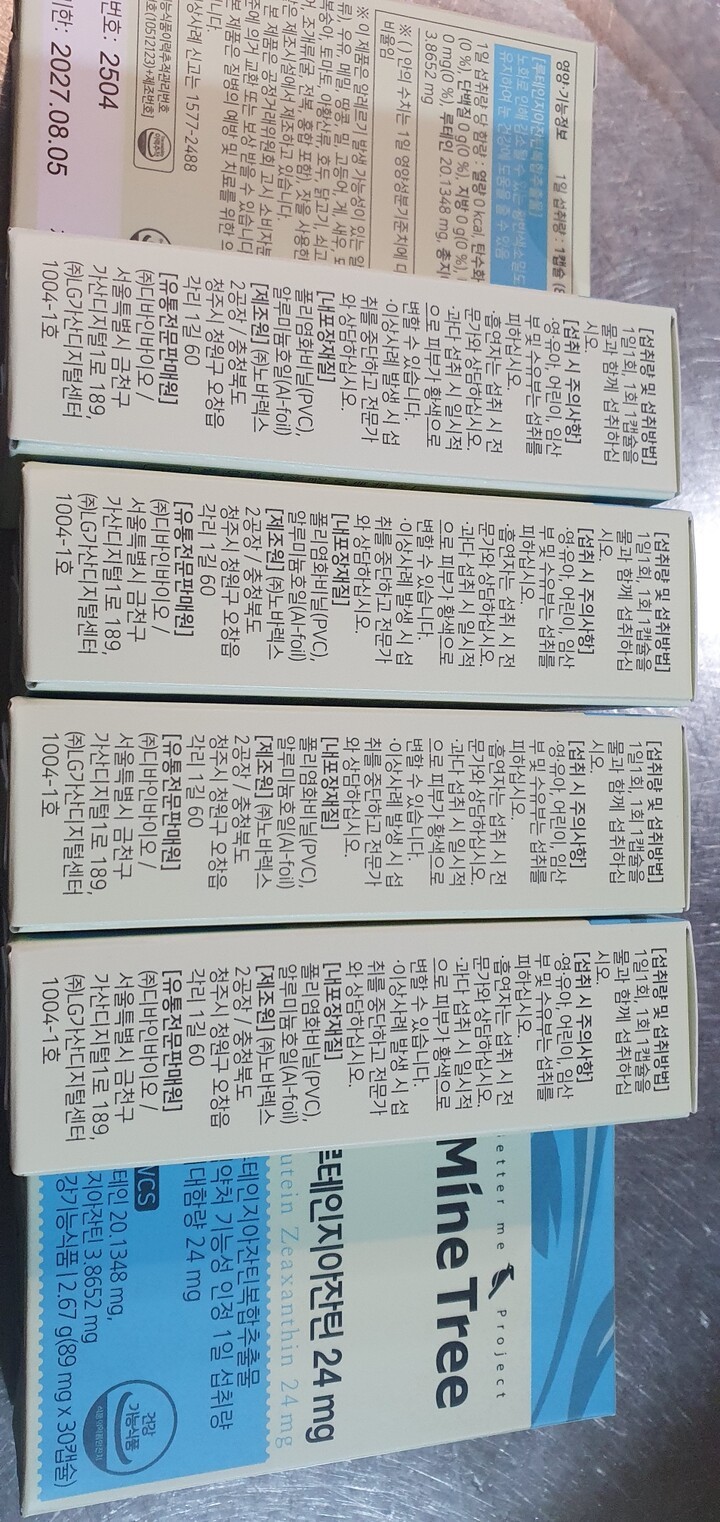 영양·기능정보 1일 섭취량 : 1캡슐
[루테인지아잔틴복합추출물]
노화로 인해 감소될 수 있는 황반색소밀도
유지하여 눈 건강에 도움을 줄 수 있음
1일 섭취량 당 함량 : 열량 0 kcal, 탄수화
(0 %), 단백질 0 g(0 %), 지방 0 g(0 %),
0 mg(0 %), 루테인 20.1348 mg, 총지
3.8652 mg
※ ( ) 안의 수치는 1일 영양성분기준치에 대
비율임
※ 이 제품은 알레르기 발생 가능성이 있는 알
우유, 메밀, 땅콩, 밀, 고등어, 게, 새우, 도
복숭아, 토마토, 아황산류, 호두, 닭고기, 쇠고
어, 조개류(굴, 전복, 홍합 포함), 잣을 사용한
은 제조시설에서 제조하고 있습니다.
본 제품은 공정거래위원회 고시 소비자분
준에 의거 교환 또는 보상 받을 수 있습니다
본 제품은 질병의 예방 및 치료를 위한 으
니다.
상사례 신고는 1577-2488
능식품이력추적관리번호
호(1051213)+제조번호
번호: 2504
기한: 2027.08.05
[섭취량 및 섭취방법]
1일1회, 1회1캡슐을
물과 함께 섭취하십
시오.
[섭취 시 주의사항]
·영·유아, 어린이, 임산
부 및 수유부는 섭취를
피하십시오.
·흡연자는 섭취 시 전
문가와 상담하십시오.
·과다 섭취 시 일시적
으로 피부가 황색으로
변할 수 있습니다.
·이상사례 발생 시 섭
취를 중단하고 전문가
와 상담하십시오.
[내포장재질]
폴리염화비닐(PVC),
알루미늄호일(Al-foil)
[제조원] ㈜노바렉스
2공장 / 충청북도
청주시 청원구 오창읍
각리1길 60
[유통전문판매원]
㈜디바인바이오 /
서울특별시 금천구
가산디지털1로 189,
㈜LG가산디지털센터
1004-1호
[섭취량 및 섭취방법]
1일1회, 1회1캡슐을
물과 함께 섭취하십
시오.
[섭취 시 주의사항]
·영·유아, 어린이, 임산
부 및 수유부는 섭취를
피하십시오.
·흡연자는 섭취 시 전
문가와 상담하십시오.
·과다 섭취 시 일시적
으로 피부가 황색으로
변할 수 있습니다.
·이상사례 발생 시 섭
취를 중단하고 전문가
와 상담하십시오.
[내포장재질]
폴리염화비닐(PVC),
알루미늄호일(Al-foil)
[제조원] ㈜노바렉스
2공장 / 충청북도
청주시 청원구 오창읍
각리1길 60
[유통전문판매원]
㈜디바인바이오 /
서울특별시 금천구
가산디지털1로 189,
㈜LG가산디지털센터
1004-1호
[섭취량 및 섭취방법]
1일1회, 1회1캡슐을
물과 함께 섭취하십
시오.
[섭취 시 주의사항]
·영·유아, 어린이, 임산
부 및 수유부는 섭취를
피하십시오.
·흡연자는 섭취 시 전
문가와 상담하십시오.
·과다 섭취 시 일시적
으로 피부가 황색으로
변할 수 있습니다.
·이상사례 발생 시 섭
취를 중단하고 전문가
와 상담하십시오.
[내포장재질]
폴리염화비닐(PVC),
알루미늄호일(Al-foil)
[제조원] ㈜노바렉스
2공장 / 충청북도
청주시 청원구 오창읍
각리1길 60
[유통전문판매원]
㈜디바인바이오 /
서울특별시 금천구
가산디지털1로 189,
㈜LG가산디지털센터
1004-1호
[섭취량 및 섭취방법]
1일1회, 1회1캡슐을
물과 함께 섭취하십
시오.
[섭취 시 주의사항]
·영·유아, 어린이, 임산
부 및 수유부는 섭취를
피하십시오.
·흡연자는 섭취 시 전
문가와 상담하십시오.
·과다 섭취 시 일시적
으로 피부가 황색으로
변할 수 있습니다.
·이상사례 발생 시 섭
취를 중단하고 전문가
와 상담하십시오.
[내포장재질]
폴리염화비닐(PVC),
알루미늄호일(Al-foil)
[제조원] ㈜노바렉스
2공장 / 충청북도
청주시 청원구 오창읍
각리1길 60
[유통전문판매원]
㈜디바인바이오 /
서울특별시 금천구
가산디지털1로 189,
㈜LG가산디지털센터
1004-1호
etter me Project
Mine Tree
루테인지아잔틴 24 mg
utein Zeaxanthin 24 mg
테인지아잔틴복합추출물
약처 기능성 인정 1일 섭취량
대함량 24 mg
VCS
테인 20.1348 mg,
지아잔틴 3.8652 mg
강기능식품 | 2.67 g(89 mg x 30캡슐)
건강
기능식품
식품의약품안전처